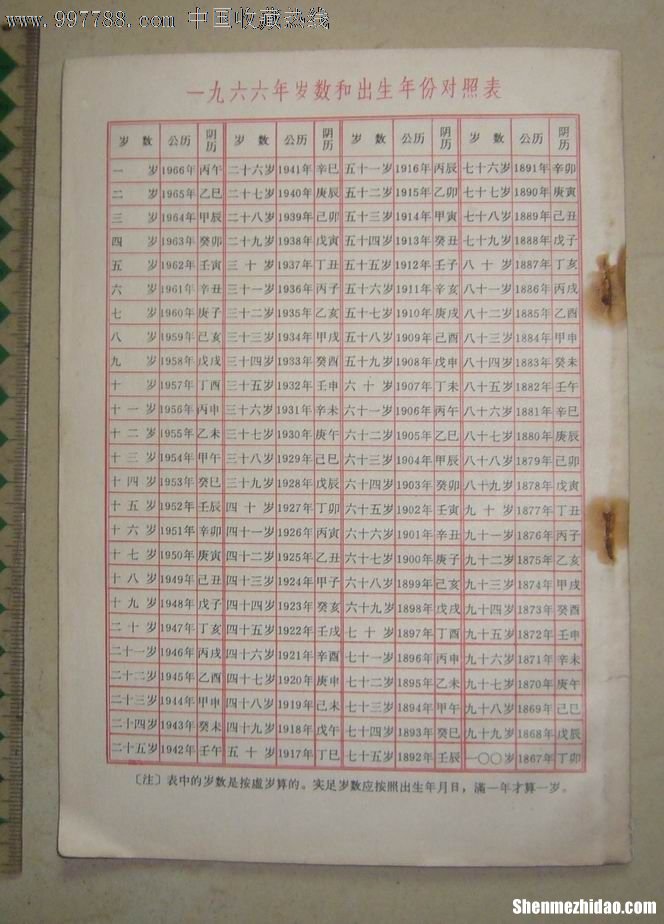 www.997788.com 中国收藏热线
一九六六年岁数和出生年份对照表
岁数 公历 阴历 岁数 公历 阴历 岁数 公历 阴历 岁数 公历 阴历
一岁 1966年 丙午 二十六岁 1941年 辛巳 五十一岁 1916年 丙辰 七十六岁 1891年 辛卯
二岁 1965年 乙巳 二十七岁 1940年 庚辰 五十二岁 1915年 乙卯 七十七岁 1890年 庚寅
三岁 1964年 甲辰 二十八岁 1939年 己卯 五十三岁 1914年 甲寅 七十八岁 1889年 己丑
四岁 1963年 癸卯 二十九岁 1938年 戊寅 五十四岁 1913年 癸丑 七十九岁 1888年 戊子
五岁 1962年 壬寅 三十岁 1937年 丁丑 五十五岁 1912年 壬子 八十岁 1887年 丁亥
六岁 1961年 辛丑 三十一岁 1936年 丙子 五十六岁 1911年 辛亥 八十一岁 1886年 丙戌
七岁 1960年 庚子 三十二岁 1935年 乙亥 五十七岁 1910年 庚戌 八十二岁 1885年 乙酉
八岁 1959年 己亥 三十三岁 1934年 甲戌 五十八岁 1909年 己酉 八十三岁 1884年 甲申
九岁 1958年 戊戌 三十四岁 1933年 癸酉 五十九岁 1908年 戊申 八十四岁 1883年 癸未
十岁 1957年 丁酉 三十五岁 1932年 壬申 六十岁 1907年 丁未 八十五岁 1882年 壬午
十一岁 1956年 丙申 三十六岁 1931年 辛未 六十一岁 1906年 丙午 八十六岁 1881年 辛巳
十二岁 1955年 乙未 三十七岁 1930年 庚午 六十二岁 1905年 乙巳 八十七岁 1880年 庚辰
十三岁 1954年 甲午 三十八岁 1929年 己巳 六十三岁 1904年 甲辰 八十八岁 1879年 己卯
十四岁 1953年 癸巳 三十九岁 1928年 戊辰 六十四岁 1903年 癸卯 八十九岁 1878年 戊寅
十五岁 1952年 壬辰 四十岁 1927年 丁卯 六十五岁 1902年 壬寅 九十岁 1877年 丁丑
十六岁 1951年 辛卯 四十一岁 1926年 丙寅 六十六岁 1901年 辛丑 九十一岁 1876年 丙子
十七岁 1950年 庚寅 四十二岁 1925年 乙丑 六十七岁 1900年 庚子 九十二岁 1875年 乙亥
十八岁 1949年 己丑 四十三岁 1924年 甲子 六十八岁 1899年 己亥 九十三岁 1874年 甲戌
十九岁 1948年 戊子 四十四岁 1923年 癸亥 六十九岁 1898年 戊戌 九十四岁 1873年 癸酉
二十岁 1947年 丁亥 四十五岁 1922年 壬戌 七十岁 1897年 丁酉 九十五岁 1872年 壬申
二十一岁 1946年 丙戌 四十六岁 1921年 辛酉 七十一岁 1896年 丙申 九十六岁 1871年 辛未
二十二岁 1945年 乙酉 四十七岁 1920年 庚申 七十二岁 1895年 乙未 九十七岁 1870年 庚午
二十三岁 1944年 甲申 四十八岁 1919年 己未 七十三岁 1894年 甲午 九十八岁 1869年 己巳
二十四岁 1943年 癸未 四十九岁 1918年 戊午 七十四岁 1893年 癸巳 九十九岁 1868年 戊辰
二十五岁 1942年 壬午 五十岁 1917年 丁巳 七十五岁 1892年 壬辰 一〇〇岁 1867年 丁卯
〔注〕表中的岁数是按虚岁算的。实足岁数应按照出生年月日，满一年才算一岁。
Shenmezhidao.com